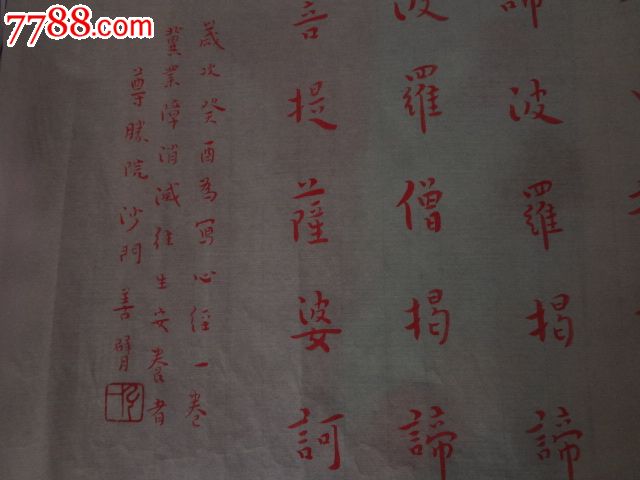 7788.com
諦波羅揭諦
波羅僧揭諦
菩提薩婆訶
歲次癸酉為寫心經一卷
冀業障消滅往生安養者
尊勝院沙門善臂